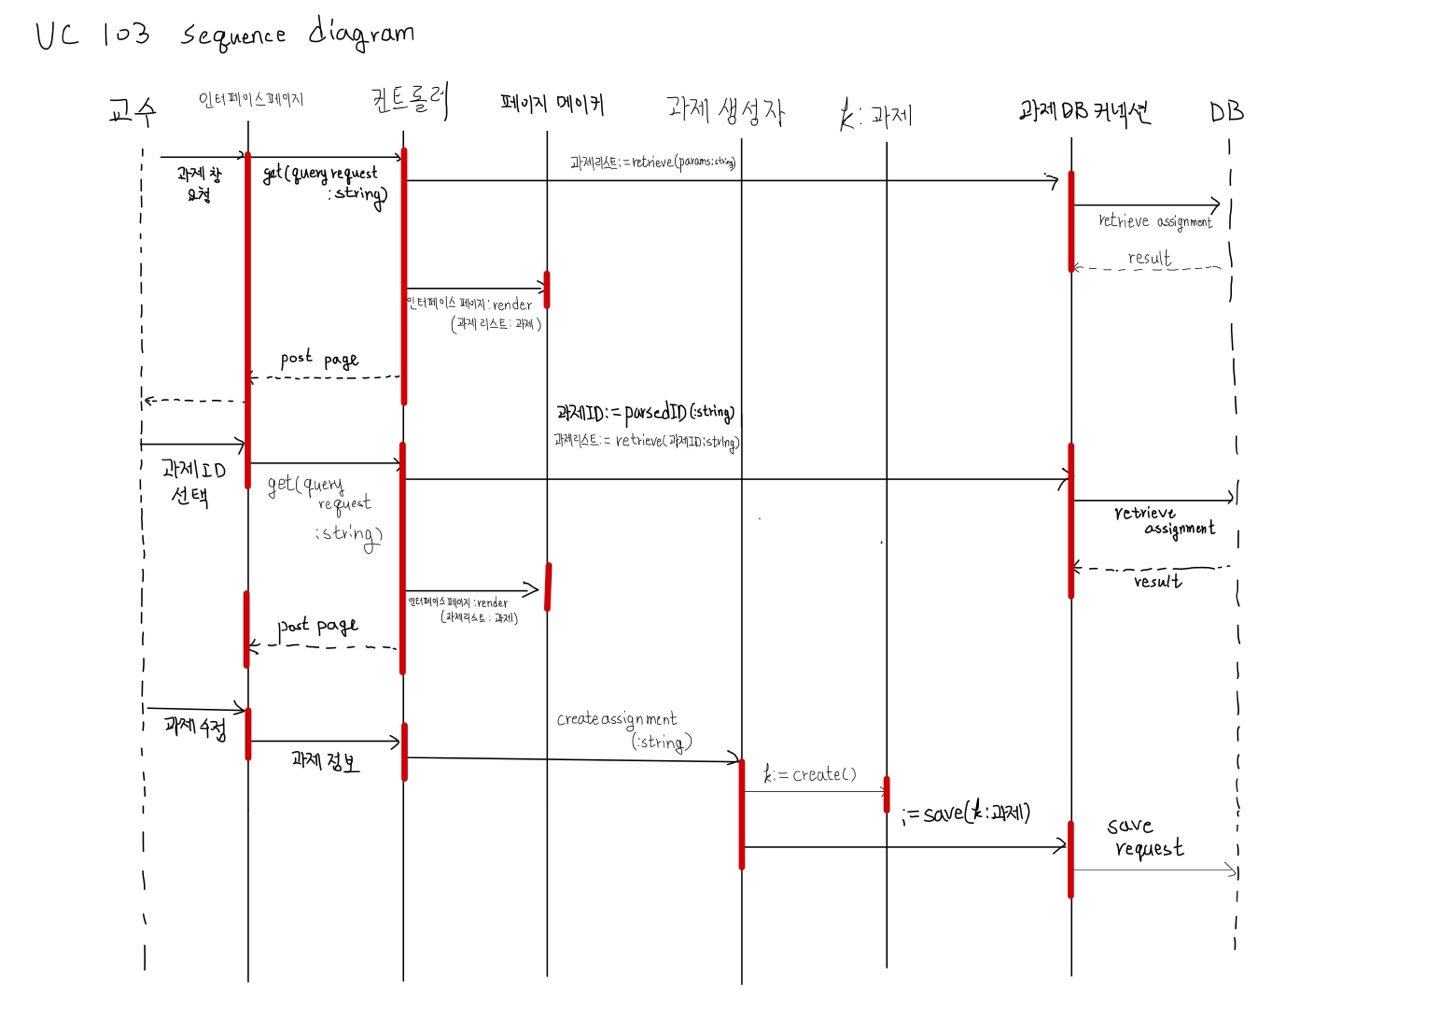 UC 103 sequence diagram
교수
인터페이스페이지
컨트롤러
페이지 메이커
과제 생성자
k:과제
과제DB커넥션
DB
과제 창
요청
get(query request
:string)
과제리스트:=retrieve(params:string)
retrieve assignment
result
인터페이스 페이지:render
(과제 리스트:과제)
post page
과제ID:=parsedID(:string)
과제리스트:=retrieve(과제ID:string)
과제ID
선택
get(query
request
:string)
retrieve
assignment
result
인터페이스 페이지:render
(과제리스트:과제)
post page
과제 수정
과제 정보
create assignment
(:string)
k:=create()
;=save(k:과제)
save
request